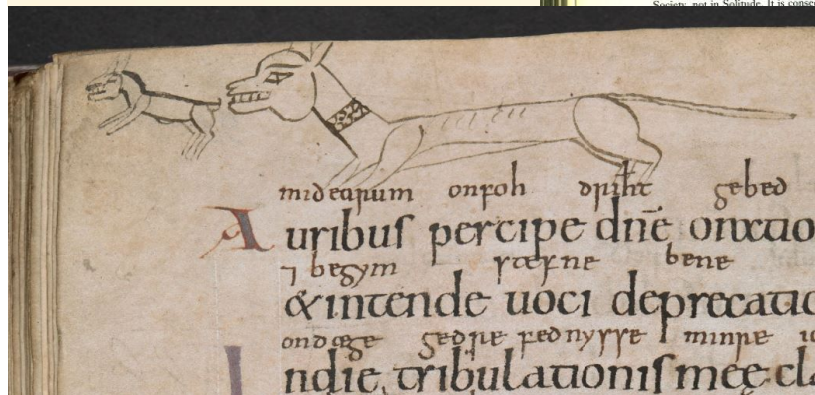 Society, not in Solitude. It is conse
mid earum onfoh driht gebed
Auribus percipe dn̄e oratio
⁊ begym stefne bene
& intende uoci deprecatio
on dæge gedrefednysse minre
In die tribulationis meę cla